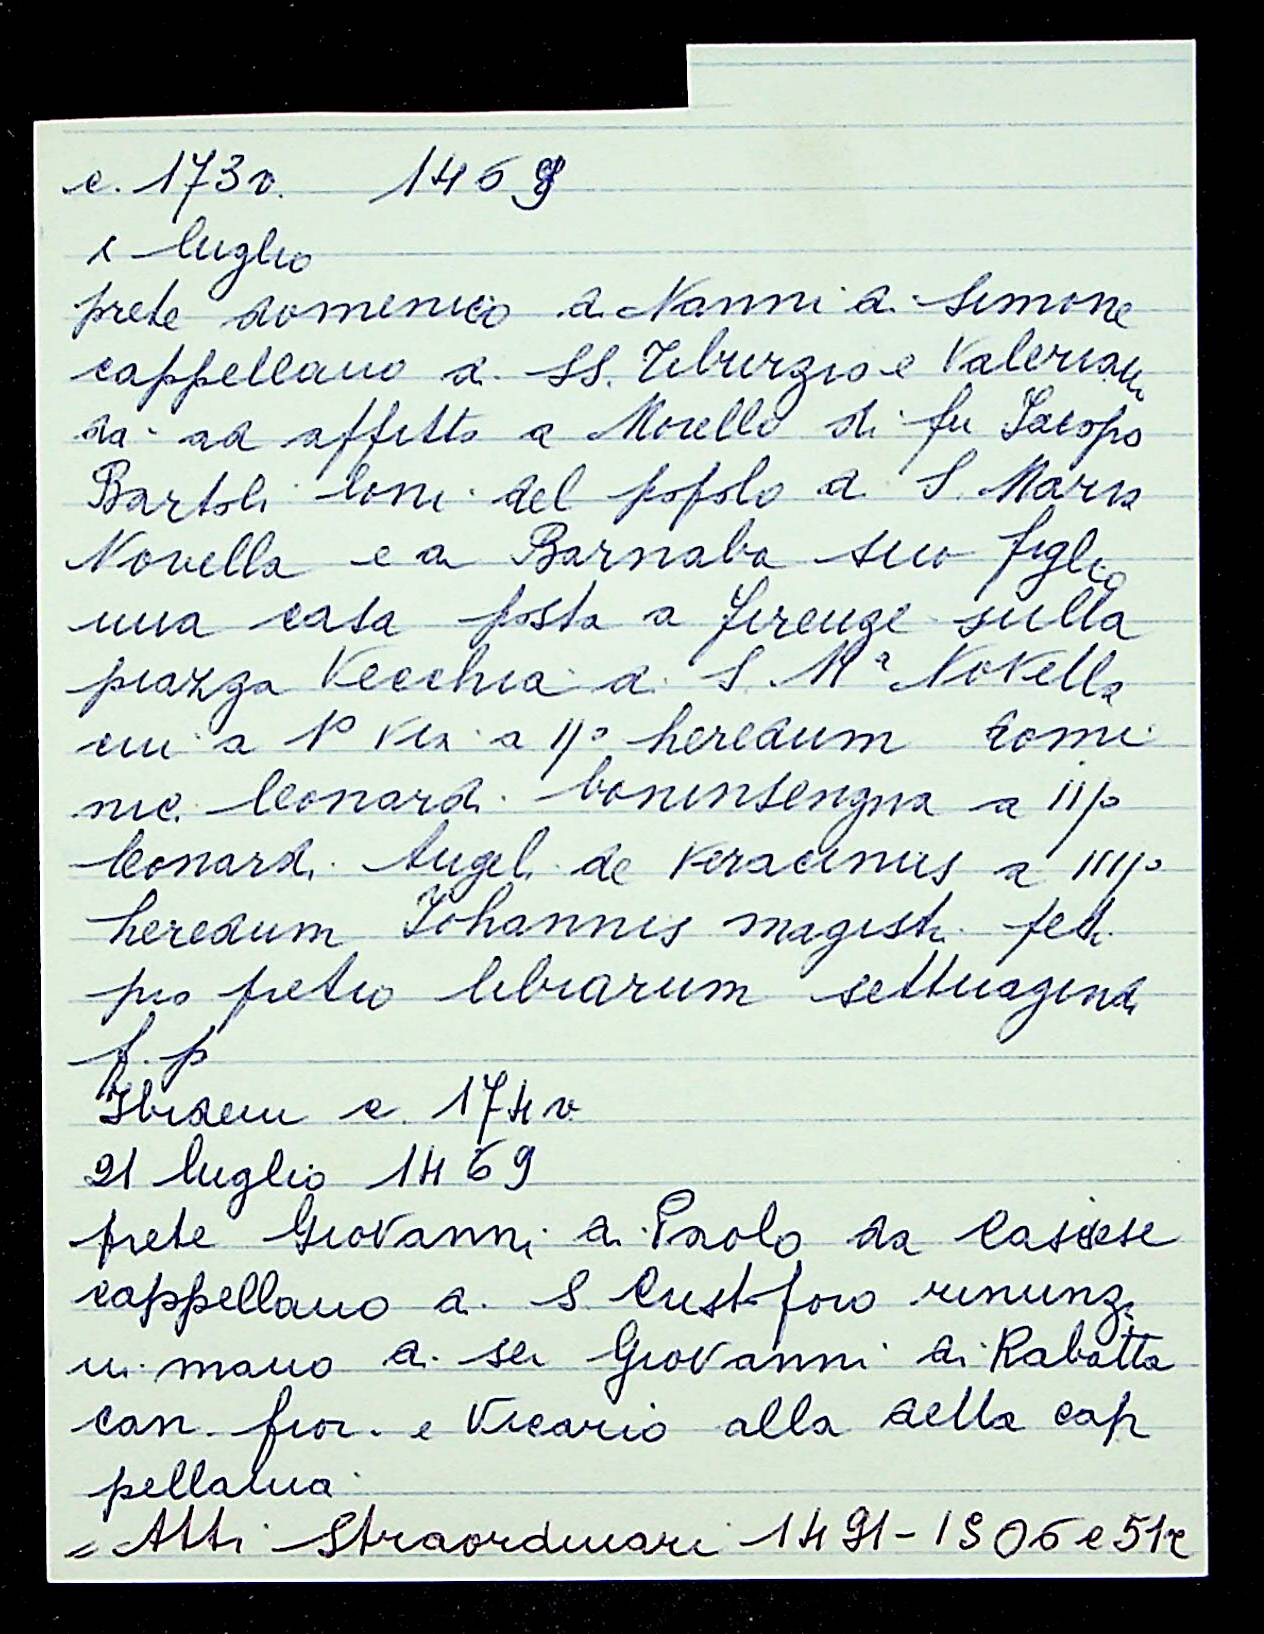 c. 173v. 1469
1 luglio
prete domenico di Nanni di Simone
cappellano di SS. Tiburzio e Valeriano
da ad affitto a Morello di fu Jacopo
Bartoli Coni del popolo di S. Maria
Novella e a Barnaba suo figlio
una casa posta a firenze sulla
piazza Vecchia di S. Mª Novella
cui a 1º via a IIº heredum
nic. leonardi boninsengna a iiiº
leonardi Angeli de Veracinis a iiiiº
heredum Johannis magistri
pro pretio librarum settuaginti
f. p
Ibidem c. 174v
21 luglio 1469
prete Giovanni di Paolo da
cappellano di S Cristoforo rinunzi
in mano di ser Giovanni di Rabatta
can. fior. e Vicario alla detta cap
pellania
Atti Straordinari 1491-1506 c 51r